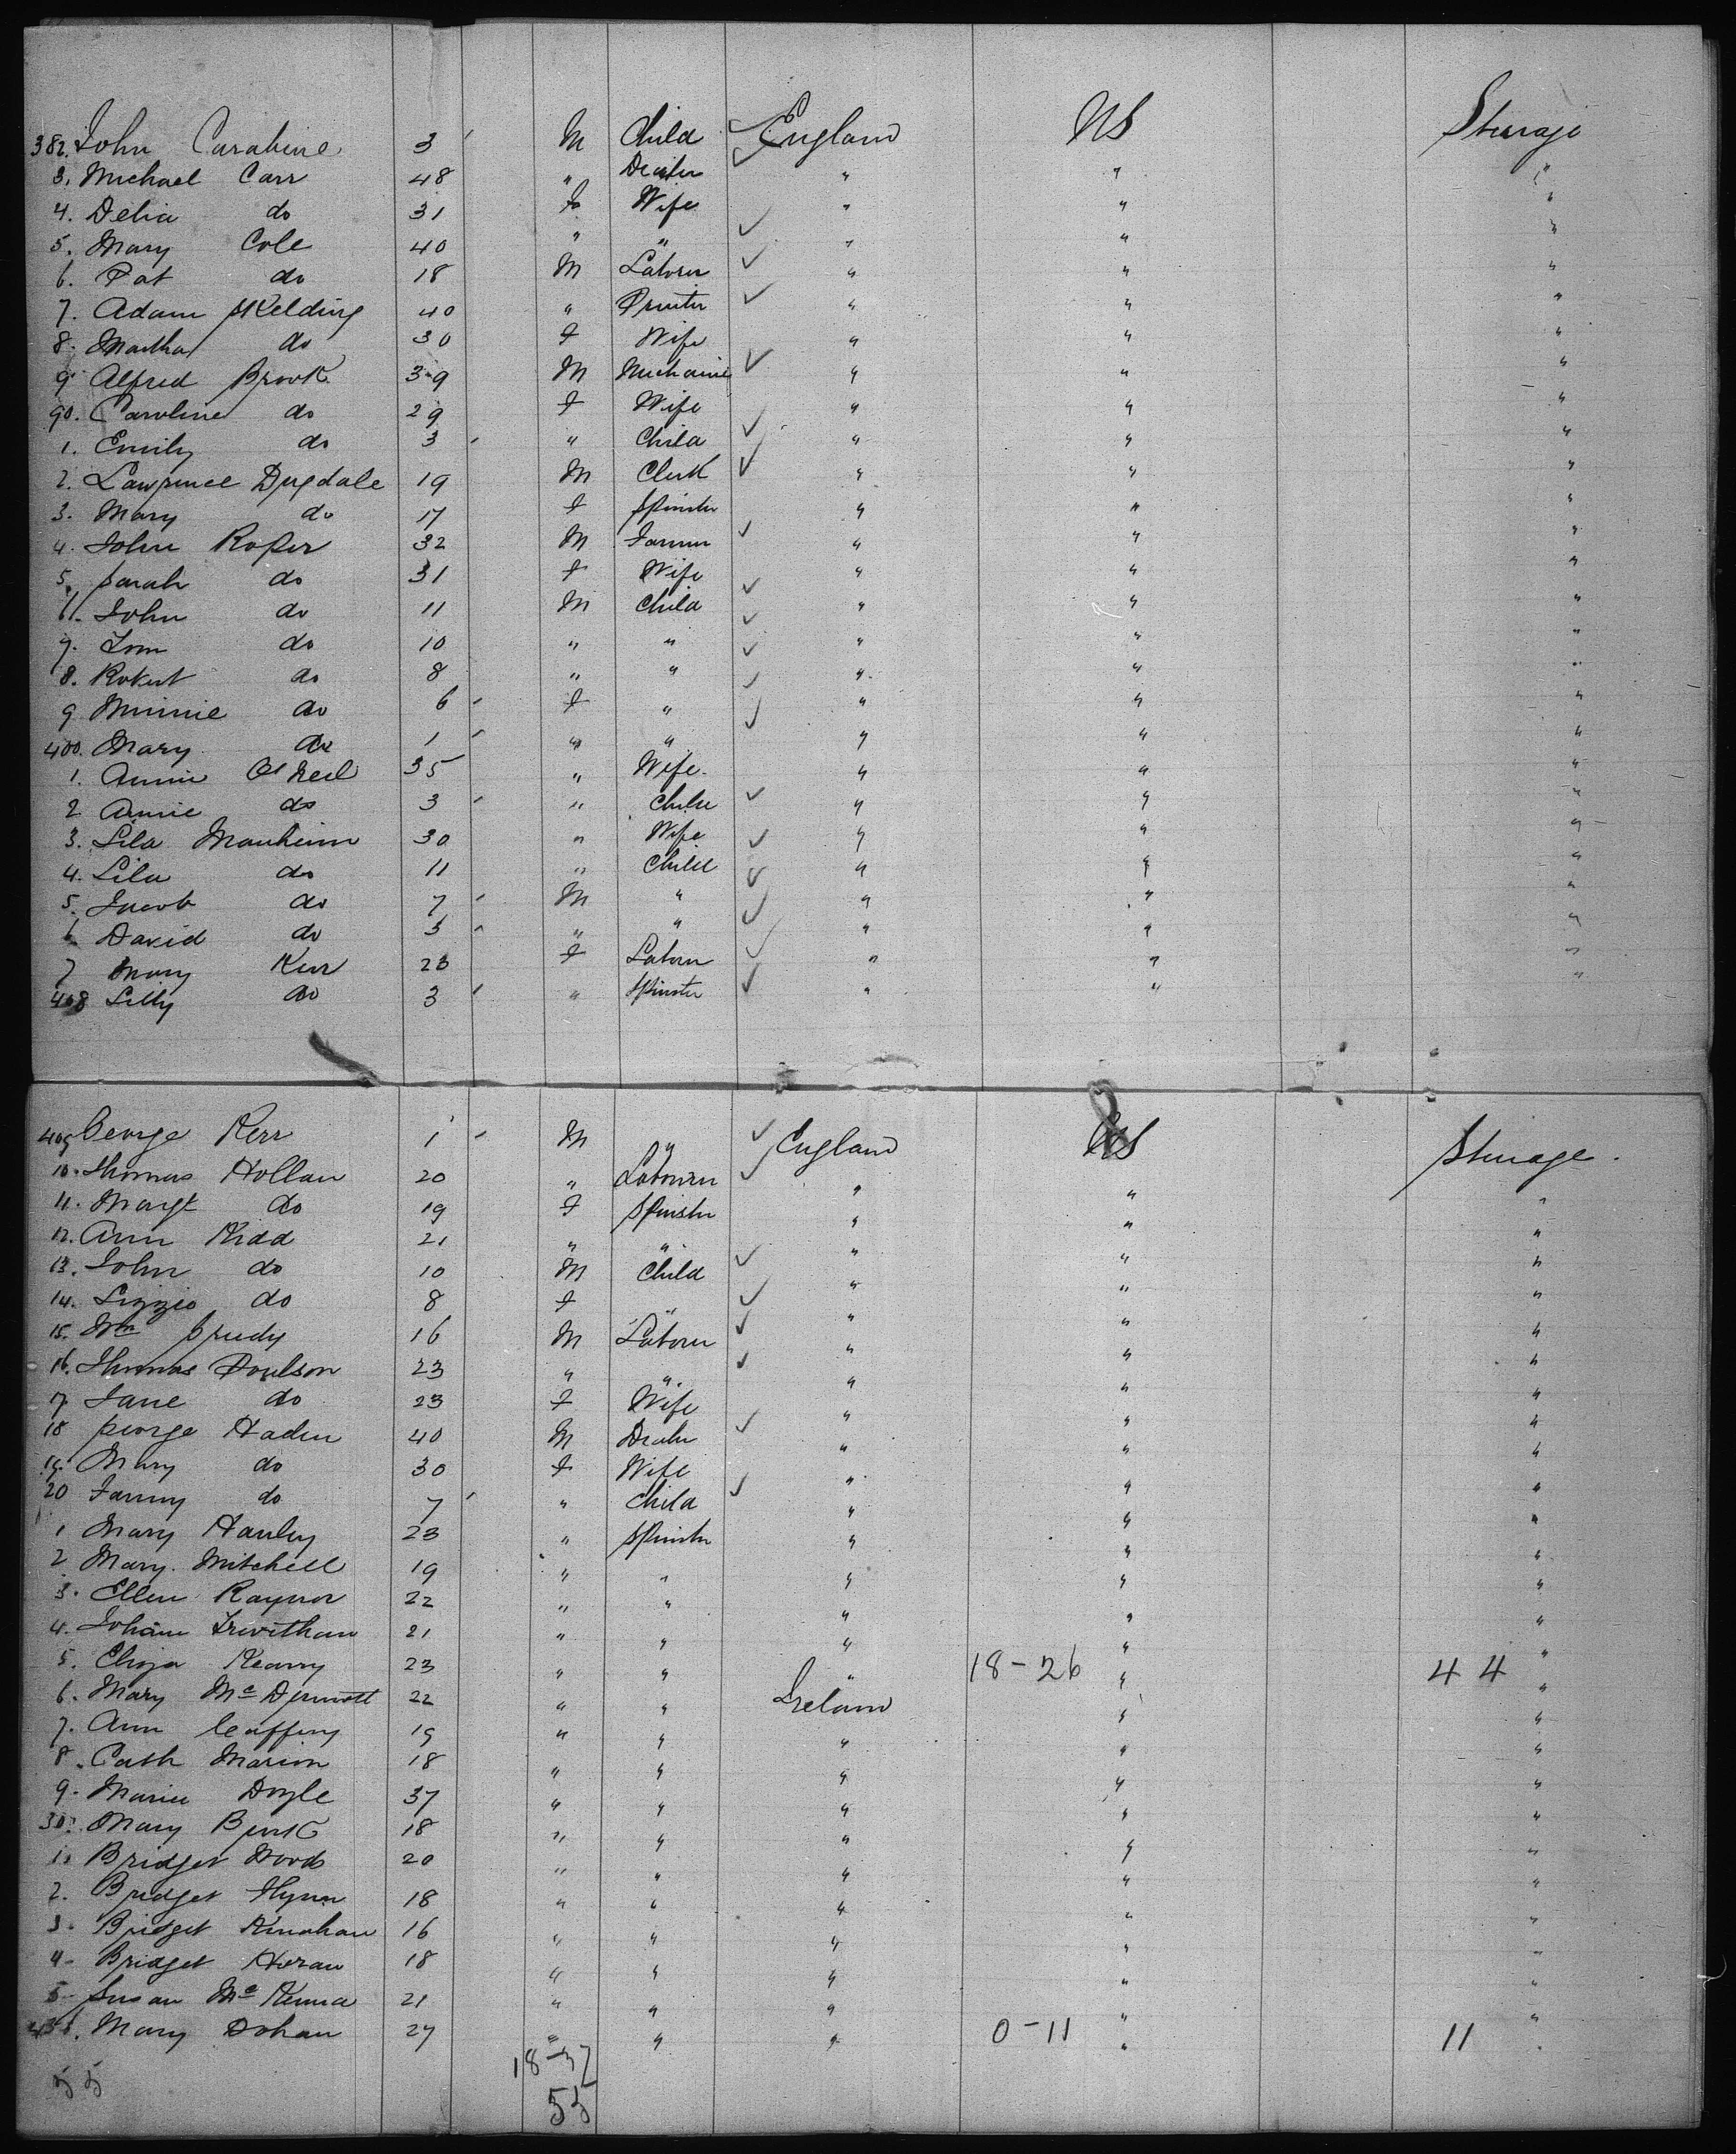 382. John Carabine 3 ' M Child ✓ England US Steerage
3. Michael Carr 48 " Dealer ✓ " " "
4. Delia do 31 F Wife " " "
5. Mary Cole 40 " " ✓ " " "
6. Pat do 18 M Laborer ✓ " " "
7. Adam Skelding 40 " Printer ✓ " " "
8. Martha do 30 F Wife " " "
9. Alfred Brook 39 M Mechanic ✓ " " "
90. Caroline do 29 F Wife " " "
1. Emily do 3 ' " Child ✓ " " "
2. Lawrence Dugdale 19 M Clerk ✓ " " "
3. Mary do 17 F Spinster " " "
4. John Roper 32 M Farmer ✓ " " "
5. Sarah do 31 F Wife " " "
6. John do 11 M Child ✓ " " "
7. Tom do 10 " " ✓ " " "
8. Robert do 8 " " ✓ " " "
9 Minnie do 6 ' F " ✓ " " "
400. Mary do 1 ' " " ✓ " " "
1. Annie O'Neil 35 " Wife " " "
2 Annie do 3 ' " Child ✓ " " "
3. Lila Manheim 30 " Wife ✓ " " "
4. Lila do 11 " Child ✓ " " "
5. Jacob do 7 ' M " ✓ " " "
6 David do 3 ' " " ✓ " " "
7 Mary Kerr 23 F Laborer ✓ " " "
408 Lilly do 3 ' " Spinster ✓ " " "
409 George Kerr 1 ' M " ✓ England US Steerage.
10. Thomas Hollan 20 " Labourer ✓ " " "
11. Margt do 19 F Spinster " " "
12. Ann Kidd 21 " " " " "
13. John do 10 M Child ✓ " " "
14. Lizzie do 8 F " ✓ " " "
15. Wm Spudy 16 M Laborer ✓ " " "
16. Thomas Poulson 23 " " ✓ " " "
17 Jane do 23 F Wife " " "
18 George Haden 40 M Dealer ✓ " " "
19. Mary do 30 F Wife " " "
20 Fanny do 7 ' " Child ✓ " " "
1 Mary Hanley 23 " Spinster " " "
2 Mary Mitchell 19 " " " " "
3. Ellen Raynor 22 " " " " "
4. Trevithan 21 " " " " "
5. Eliza Kearny 23 " " " 18-26 " 44 "
6. Mary Mc Dermott 22 " " Ireland " "
7. Ann 19 " " " " "
8. Cath Marion 18 " " " " "
9. Maria Doyle 37 " " " " "
30. Mary Burk 18 " " " " "
1. Bridget Woods 20 " " " " "
2. Bridget Flynn 18 " " " " "
3. Bridget Kinahan 16 " " " " "
4. Bridget Horan 18 " " " " "
5 Susan Mc Kenna 21 " " " " "
436. Mary Dohan 27 " " " 0-11 " 11 "
55 18-37
55